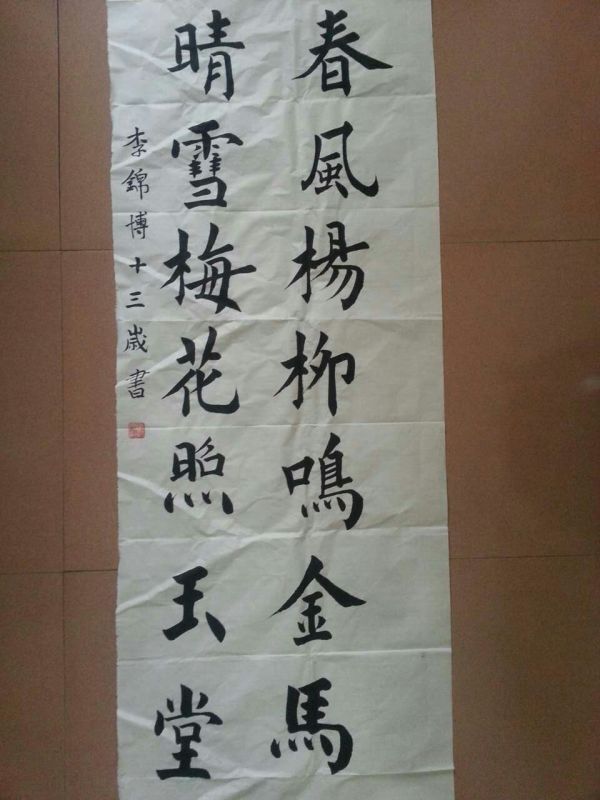 春風楊柳鳴金馬
晴雪梅花照玉堂
李錦博十三歲書